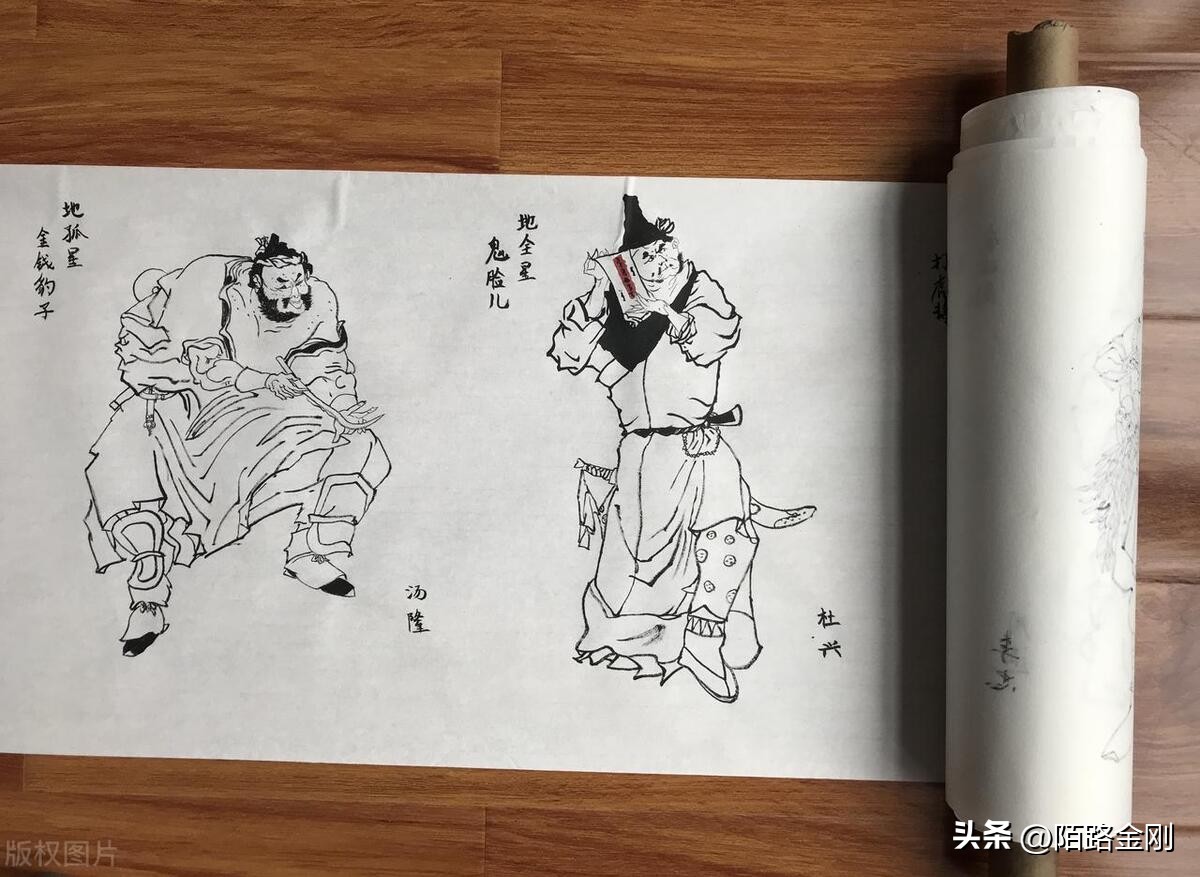 地孤星
金钱豹子
汤隆
地全星
鬼脸儿
杜兴
打虎将
头条 @陌路金刚
版权图片